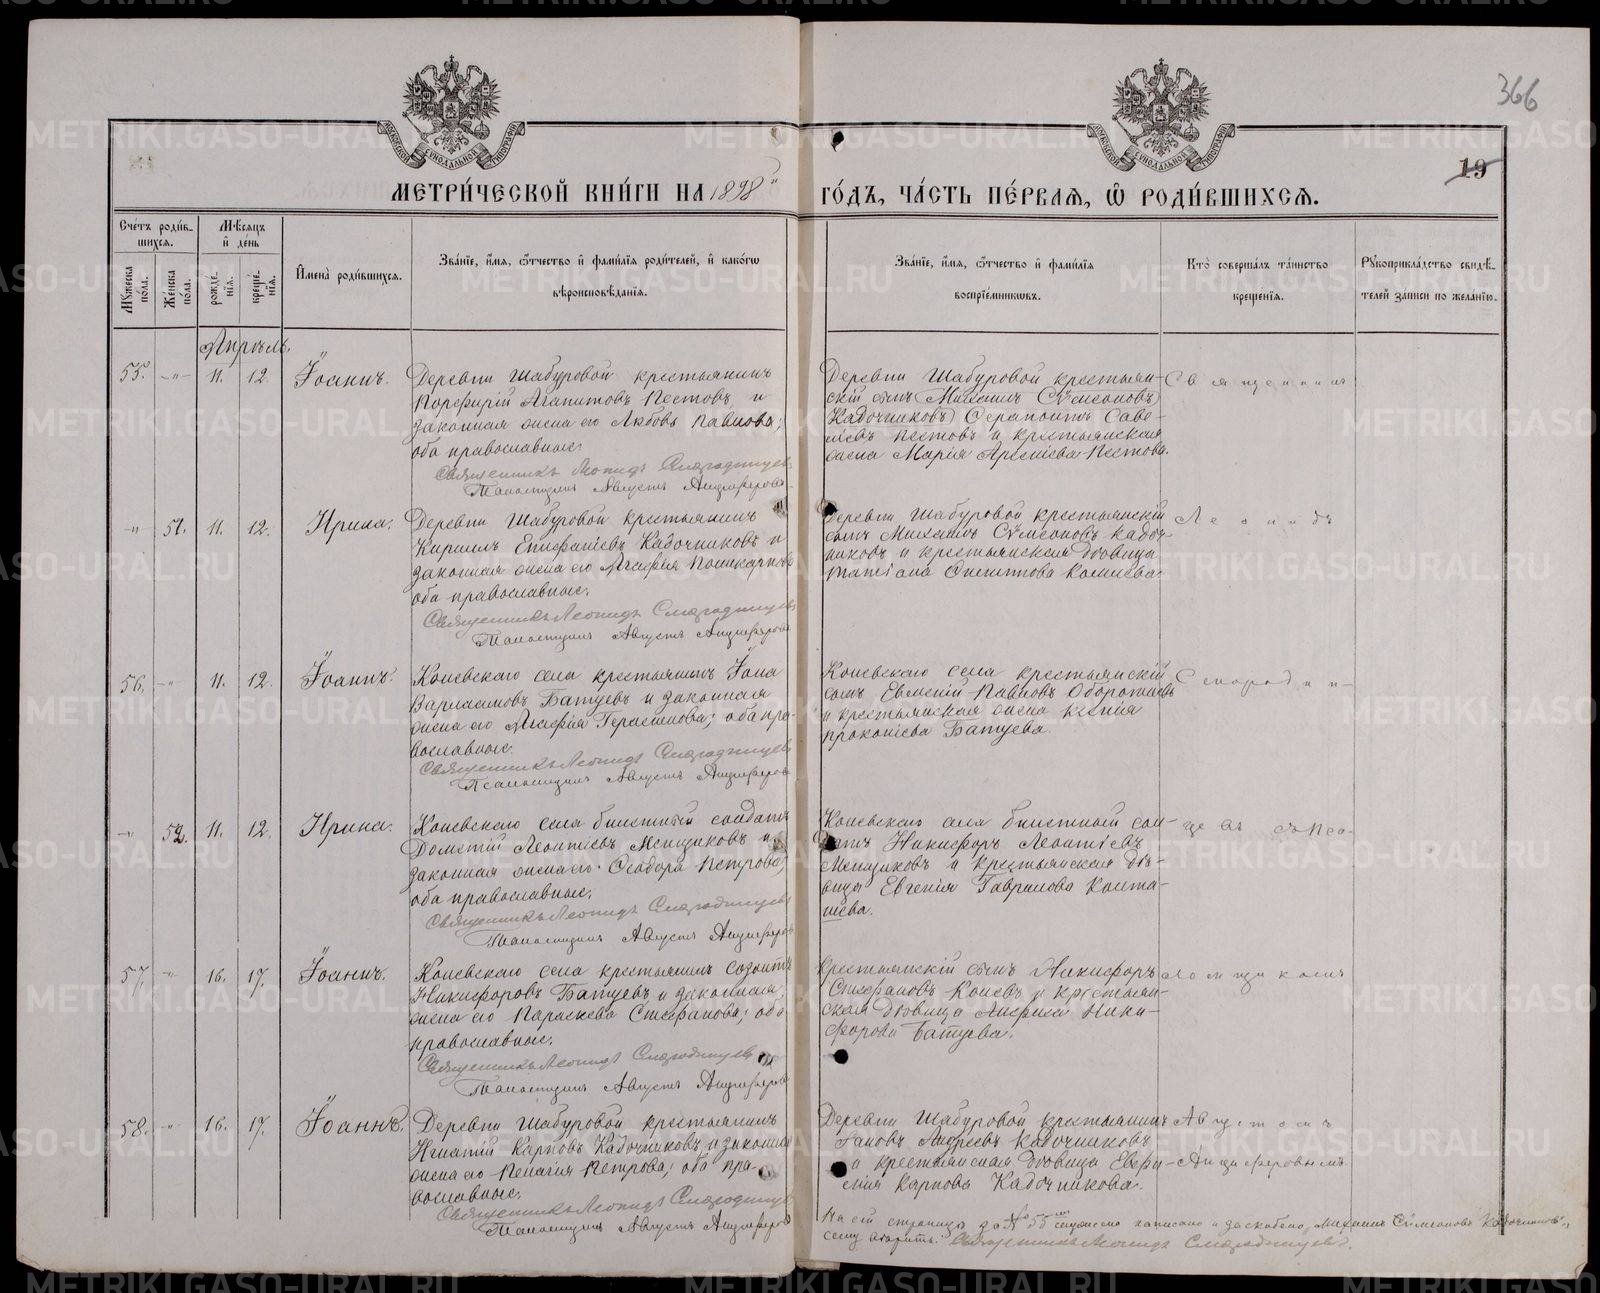 366
19
МЕТРИ́ЧЕСКОЙ КНИ́ГИ НА 1898
ГО́ДЪ, ЧА́СТЬ ПЕ́РВАЯ, Ѿ РОДИ́ВШИХСЯ.
Сче́тъ роди́в-
шихся.
Мѣсяцъ
и҆ де́нь
Мꙋжеска
по́ла.
Же́нска
по́ла.
рожде́-
нїя.
креще́-
нїя.
И҆мена̀ роди́вшихся.
Зва́нїе, и҆́мя, ѻ҆́тчество и҆ фами́лїя роди́телей, и҆ како́гѡ
вѣроисповѣ́данїя.
Зва́нїе, и҆́мя, ѻ҆́тчество и҆ фами́лїя
воспрїе́мникѡвъ.
Кто̀ соверша́лъ та́инство
креще́нїя.
Рꙋкоприкла́дство свидѣ́-
телей за́писи по жела́нїю.
Апрѣль.
55. -"- 11. 12. Іоаннъ.
Деревни Шабуровой крестьянинъ
Порфирій Агапитовъ Пестовъ и
законная жена его Любовь Павлова;
оба православные.
Священникъ Леонидъ Смородинцевъ
Псаломщикъ Августъ Анциферовъ
Деревни Шабуровой крестьян-
скій сынъ (Михаилъ Сѵмеоновъ
Кадочниковъ) Ферапонтъ Саве-
ліевъ Пестовъ и крестьянская
жена Марія Арсеніева Пестова.
Священникъ
-"- 51. 11. 12. Ирина.
Деревни Шабуровой крестьянинъ
Кириллъ Епифаніевъ Кадочниковъ и
законная жена его Агафія Поликарпова
оба православные.
Священникъ Леонидъ Смородинцевъ
Псаломщикъ Августъ Анциферовъ
Деревни Шабуровой крестьянскій
сынъ Михаилъ Сѵмеоновъ Кадоч-
никовъ и крестьянская дѣвица
Леонидъ
56. -"- 11. 12. Іоаннъ.
Коневскаго села крестьянинъ Іона
Варлаамовъ Батуевъ и законная
жена его Агафія Герасимова; оба пра-
вославные.
Священникъ Леонидъ Смородинцевъ
Псаломщикъ Августъ Анциферовъ
Коневскаго села крестьянскій
сынъ Евгеній Павловъ Оборотневъ
и крестьянская жена Ксенія
Прокопіева Батуева.
Смородин-
-"- 52. 11. 12. Ирина.
Коневскаго села билетный солдатъ
Дометій Леонтіевъ Менщиковъ и
законная жена его Ѳеодора Петрова;
оба православные.
Священникъ Леонидъ Смородинцевъ
Псаломщикъ Августъ Анциферовъ
Коневскаго села билетный сол-
датъ Никифоръ Леонтіевъ
Менщиковъ и крестьянская дѣ-
вица Евгенія Гаврилова Колта-
шева.
цевъ съ Пса-
57. -"- 16. 17. Іоаннъ.
Коневскаго села крестьянинъ Созонтъ
Никифоровъ Батуевъ и законная
жена его Параскева Стефанова; оба
православные.
Священникъ Леонидъ Смородинцевъ
Псаломщикъ Августъ Анциферовъ
Крестьянскій сынъ Никифоръ
Стефановъ Коневъ и крестьян-
ская дѣвица Анфиса Ники-
форова Батуева.
ломщикомъ
58. -"- 16. 17. Іоаннъ.
Деревни Шабуровой крестьянинъ
Игнатій Карповъ Кадочниковъ и законная
жена его Пелагія Петрова; оба пра-
вославные.
Священникъ Леонидъ Смородинцевъ
Псаломщикъ Августъ Анциферовъ
Деревни Шабуровой крестьянинъ
Іаковъ Андреевъ Кадочниковъ
и крестьянская дѣвица Евфи-
мія Карпова Кадочникова.
Августомъ
Анциферовымъ.
На сей страницѣ до № 55 записано и заскоблено "Михаилъ Сѵмеоновъ Кадочниковъ"
сему вѣрить. Священникъ Леонидъ Смородинцевъ.